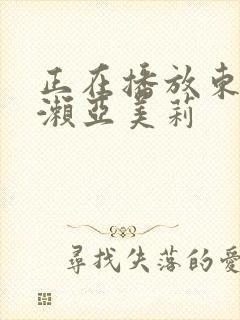 正在播放東
瀨亞美莉
尋找失落的愛